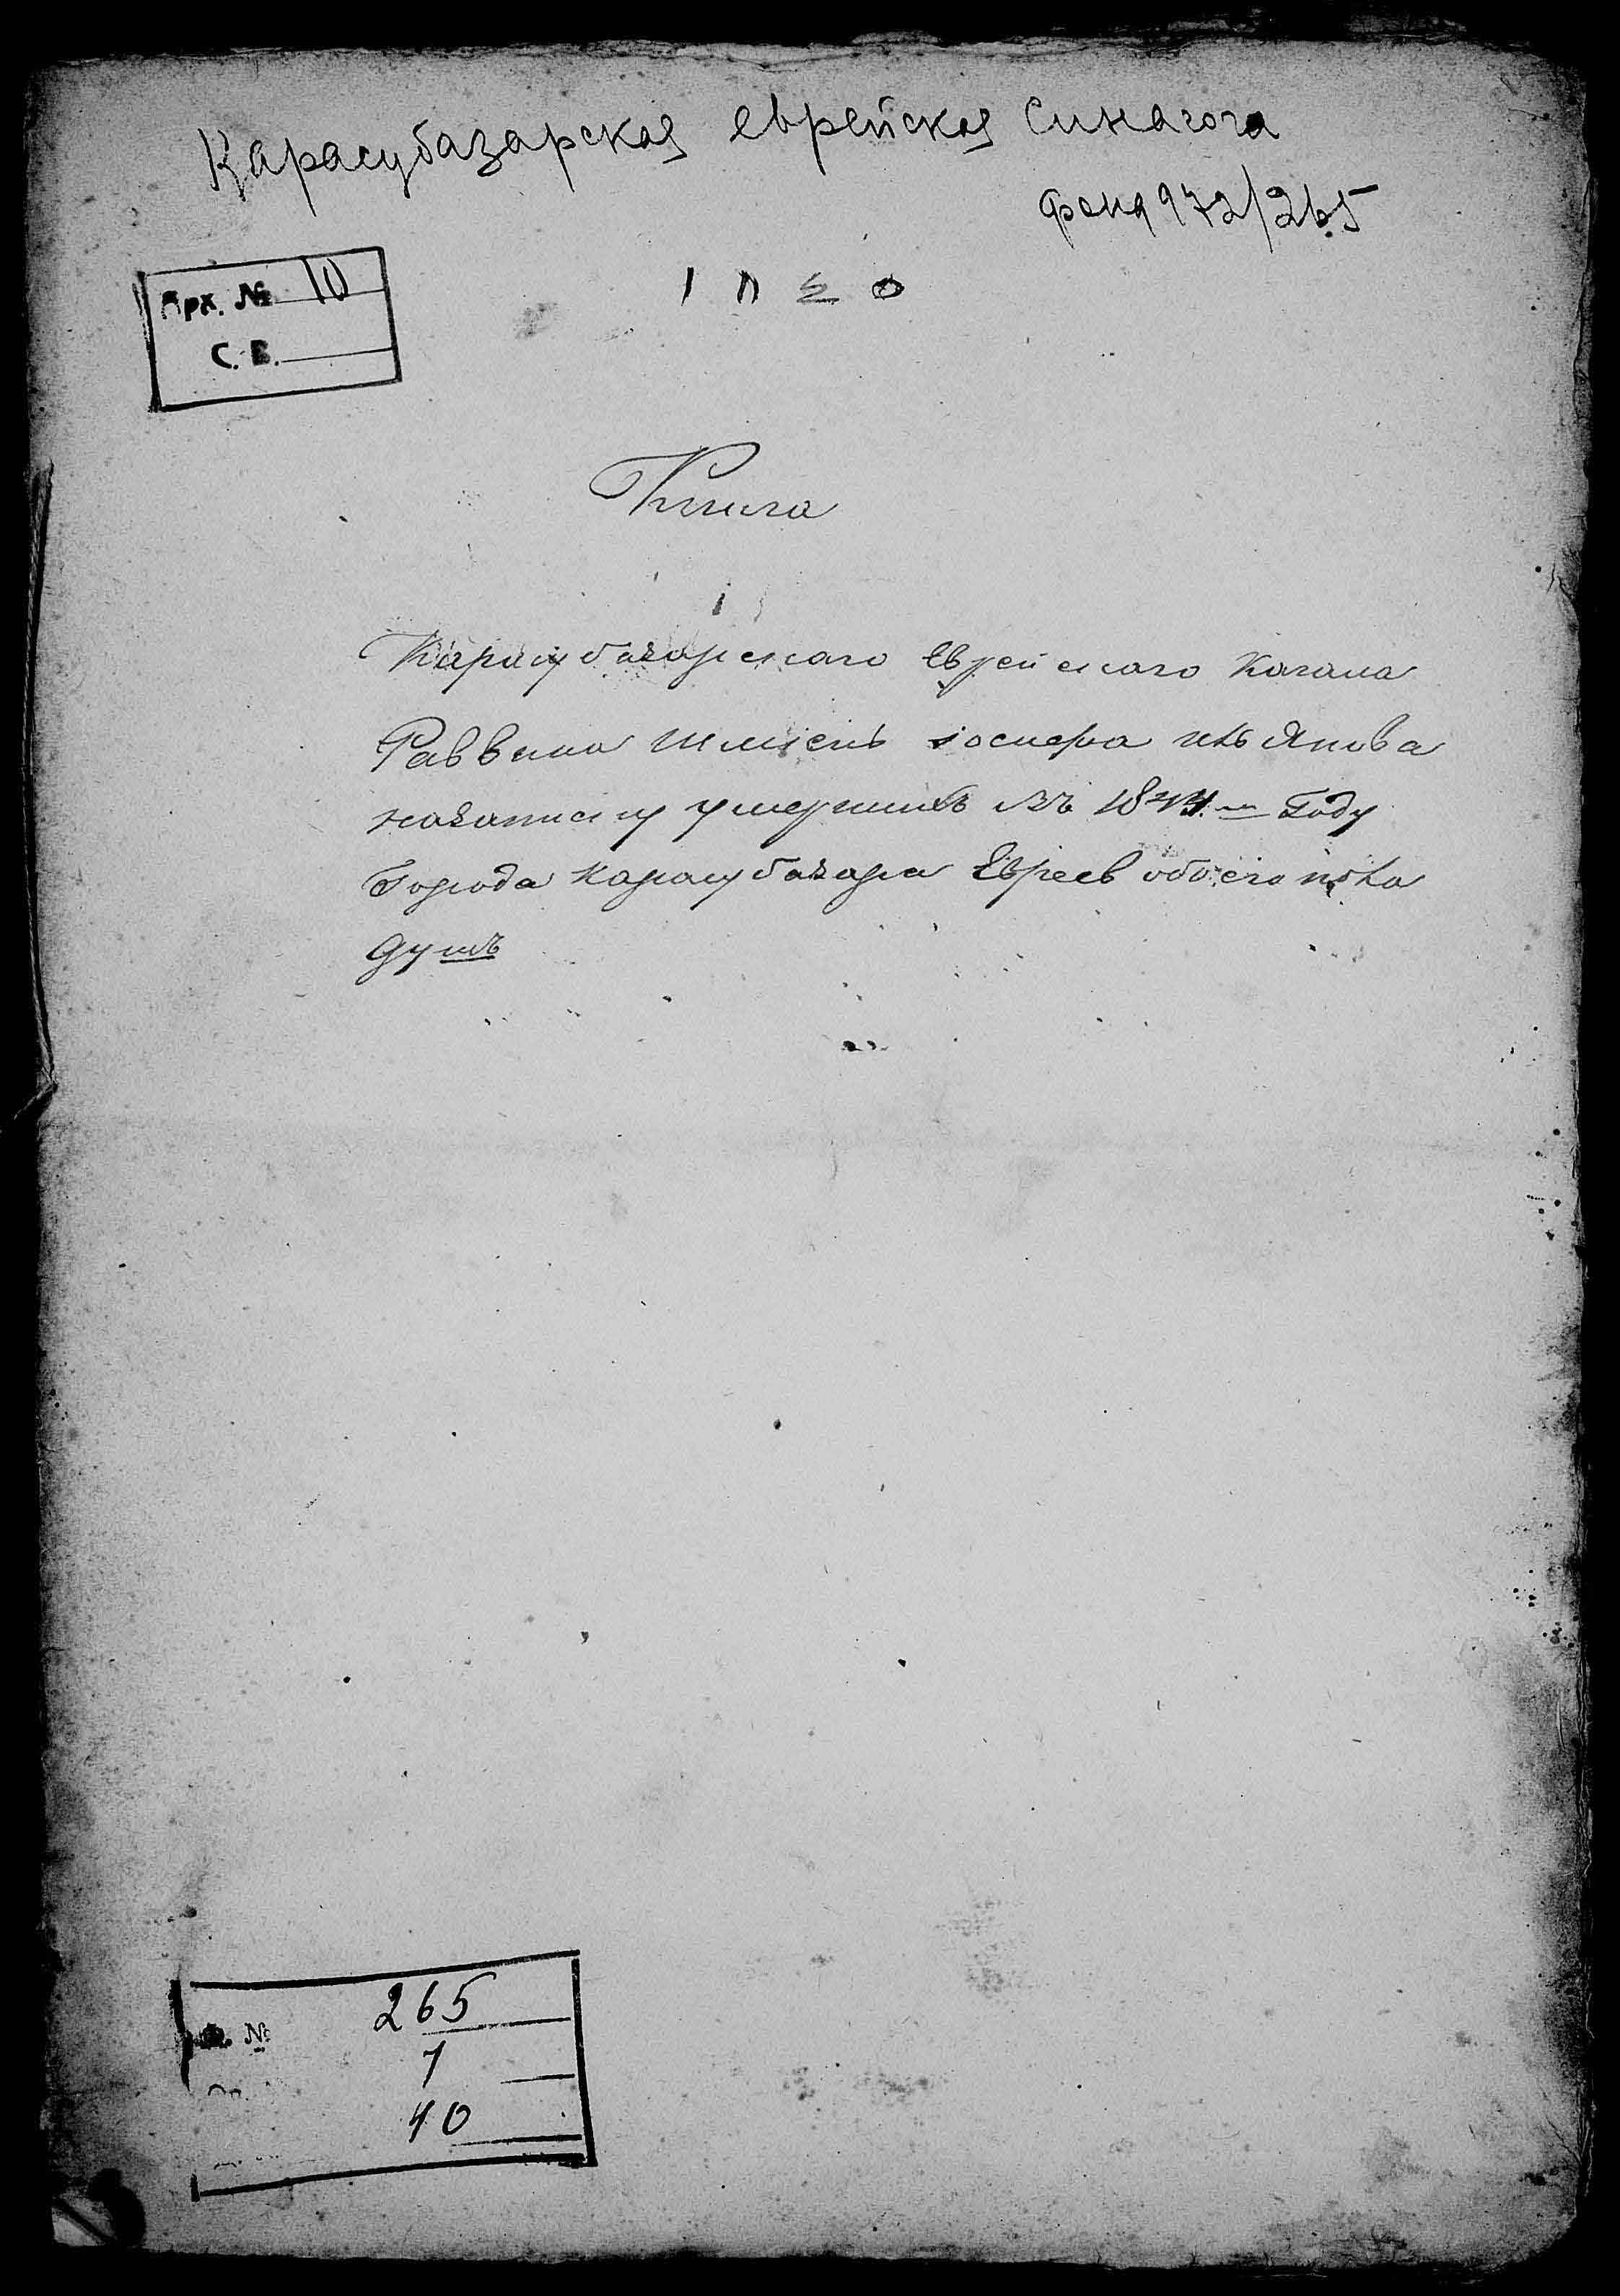 Карасубазарская еврейская Синагога
фонд 972/265
Арх. № 10
С. В.
Книга
Карасубазарскаго Еврейскаго Кагала
Раввина
назапису умершихъ въ 1844.м Году
Города Карасубазара Евреев обоего пола
душъ
№ 265
1
40